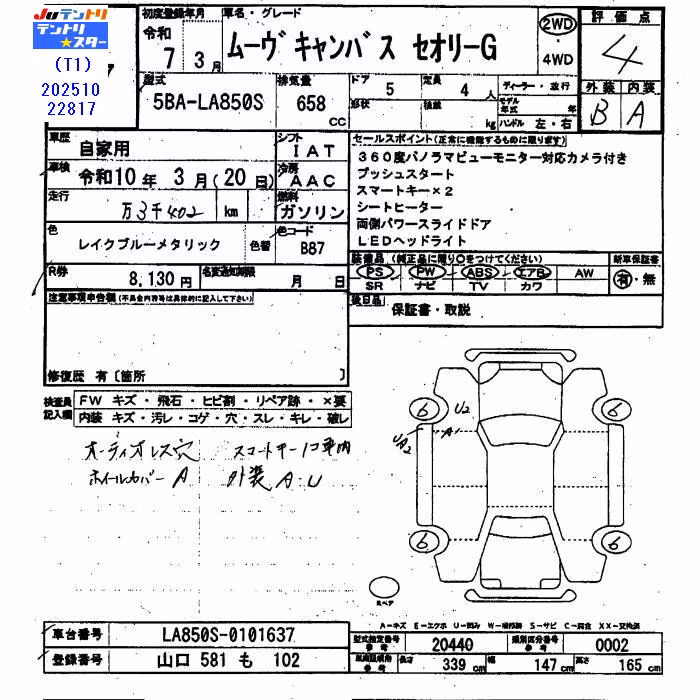 Juテントリ
テントリ
★スター
(T1)
202510
22817
初度登録年月
令和
7 年 3 月
車名・グレード
ムーヴ キャンバス セオリーG
2WD
・
4WD
評価点
4
外装 内装
B A
型式
5BA-LA850S
排気量
658 CC
ドア 5
形状
定員 4 人
積載 kg
ディーラー・並行
モデル年式 年
ハンドル 左・右
車歴
自家用
シフト
IAT
車検
令和10年 3月(20日)
冷房
AAC
走行
万3千402 km
燃料
ガソリン
色
レイクブルーメタリック
色替
色コード
B87
R券
8,130円
名変通知期限
月 日
セールスポイント(正常に機能するものに限ります)
360度パノラマビューモニター対応カメラ付き
プッシュスタート
スマートキー×2
シートヒーター
両側パワースライドドア
LEDヘッドライト
装備品(純正品に限り○をつけてください)
PS PW ABS エアB AW
SR ナビ TV カワ
新車保証書
有・無
後日品
保証書・取説
注意事項申告欄(不具合内容等は具体的に記入して下さい)
修復歴 有〔箇所 〕
検査員
記入欄
FW キズ・飛石・ヒビ割・リペア跡・×要
内装 キズ・汚レ・コゲ・穴・スレ・キレ・破レ
オーディオレス穴
ホイールカバー A
外装 A・U
6
U2
A1
UA2
6
6
6
スペア
A-キズ E-エクボ U-凹ミ W-補修跡 S-サビ C-腐食 XX-交換済
車台番号
LA850S-0101637
登録番号
山口 581 も 102
型式指定番号
参考
20440
類別区分番号
参考
0002
長さ 339 cm
幅 147 cm
高さ 165 cm